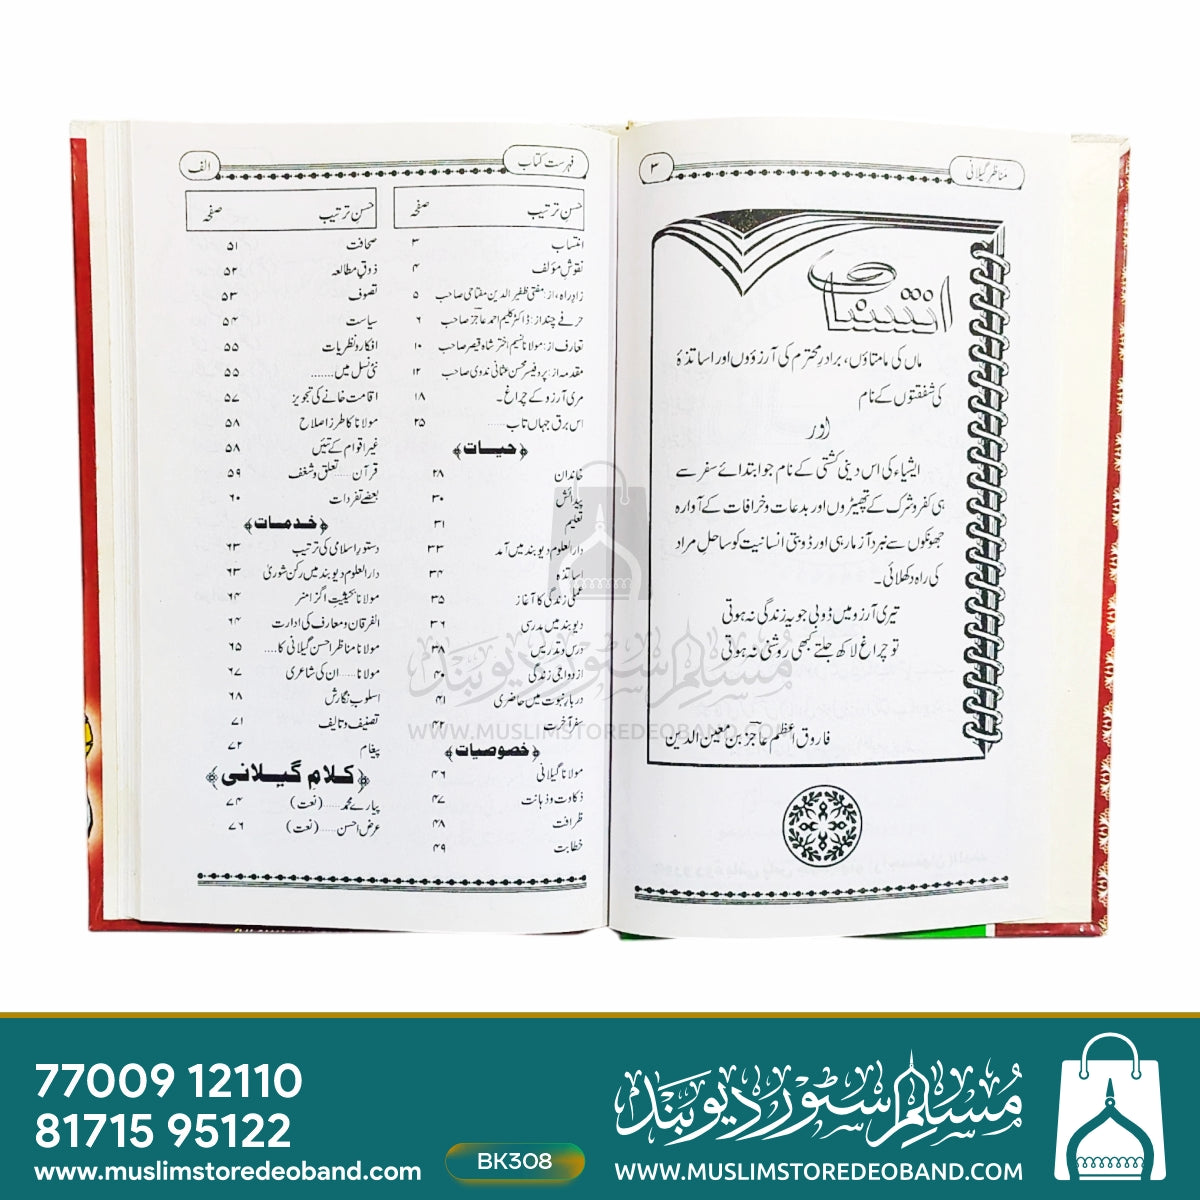 مناظر گیلانی
۳
انتساب
ماں کی مامتاؤں، برادرِ محترم کی آرزؤوں اور اساتذۂ
کی شفقتوں کے نام
اور
ایشیاء کی اس دینی کشتی کے نام جو ابتدائے سفر سے
ہی کفر و شرک کے تھپیڑوں اور بدعات و خرافات کے آوارہ
جھونکوں سے نبرد آزما رہی اور ڈوبتی انسانیت کو ساحلِ مراد
کی راہ دکھلائی۔
تیری آرزو میں ڈوبی جو یہ زندگی نہ ہوتی
تو چراغ لاکھ جلتے کبھی روشنی نہ ہوتی
فاروق اعظم عاجزؔ بن معین الدین
فہرست کتاب
الف
حسنِ ترتیب صفحہ
انتساب ۳
نقوشِ مؤلف ۴
زادِ راہ، از: مفتی ظفیر الدین مفتاحی صاحب ۵
حرفے چند از: ڈاکٹر کلیم احمد عاجزؔ صاحب ۶
تعارف از: مولانا نسیم اختر شاہ قیصر صاحب ۱۰
مقدمہ از: پروفیسر محسن عثمانی ندوی صاحب ۱۲
مری آرزو کے چراغ۔ ۱۸
اس برق جہاں تاب..... ۲۵
﴿حیات﴾
خاندان ۲۸
پیدائش ۳۰
تعلیم ۳۱
دارالعلوم دیوبند میں آمد ۳۳
اساتذہ ۳۴
عملی زندگی کا آغاز ۳۵
دیوبند میں مدرسی ۳۶
درس و تدریس ۳۸
ازدواجی زندگی ۴۰
دربارِ نبوت میں حاضری ۴۱
سفر آخرت ۴۲
﴿خصوصیات﴾
مولانا گیلانی ۴۶
ذکاوت و ذہانت ۴۷
ظرافت ۴۸
خطابت ۴۹
حسنِ ترتیب صفحہ
صحافت ۵۱
ذوقِ مطالعہ ۵۲
تصوف ۵۳
سیاست ۵۴
افکار و نظریات ۵۵
نئی نسل میں....... ۵۵
اقامت خانے کی تجویز ۵۷
مولانا کا طرزِ اصلاح ۵۸
غیر اقوام کے تئیں ۵۸
قرآن.....تعلق و شغف ۵۹
بعضے تفردات ۶۰
﴿خدمات﴾
دستورِ اسلامی کی ترتیب ۶۳
دارالعلوم دیوبند میں رکن شوریٰ ۶۳
مولانا بحیثیت اگزامنر ۶۴
الفرقان و معارف کی ادارت ۶۴
مولانا مناظر احسن گیلانی کا.... ۶۵
مولانا.....ان کی شاعری ۶۷
اسلوب نگارش ۶۸
تصنیف و تالیف ۷۱
پیغام ۷۲
﴿کلامِ گیلانی﴾
پیارے محمد.....(نعت) ۷۴
عرض احسن.....(نعت) ۷۶
مسلم سٹور دیوبند
WWW.MUSLIMSTOREDEOBAND.COM
77009 12110
81715 95122
www.muslimstoredeoband.com
BK308
مسلم سٹور دیوبند
WWW.MUSLIMSTOREDEOBAND.COM